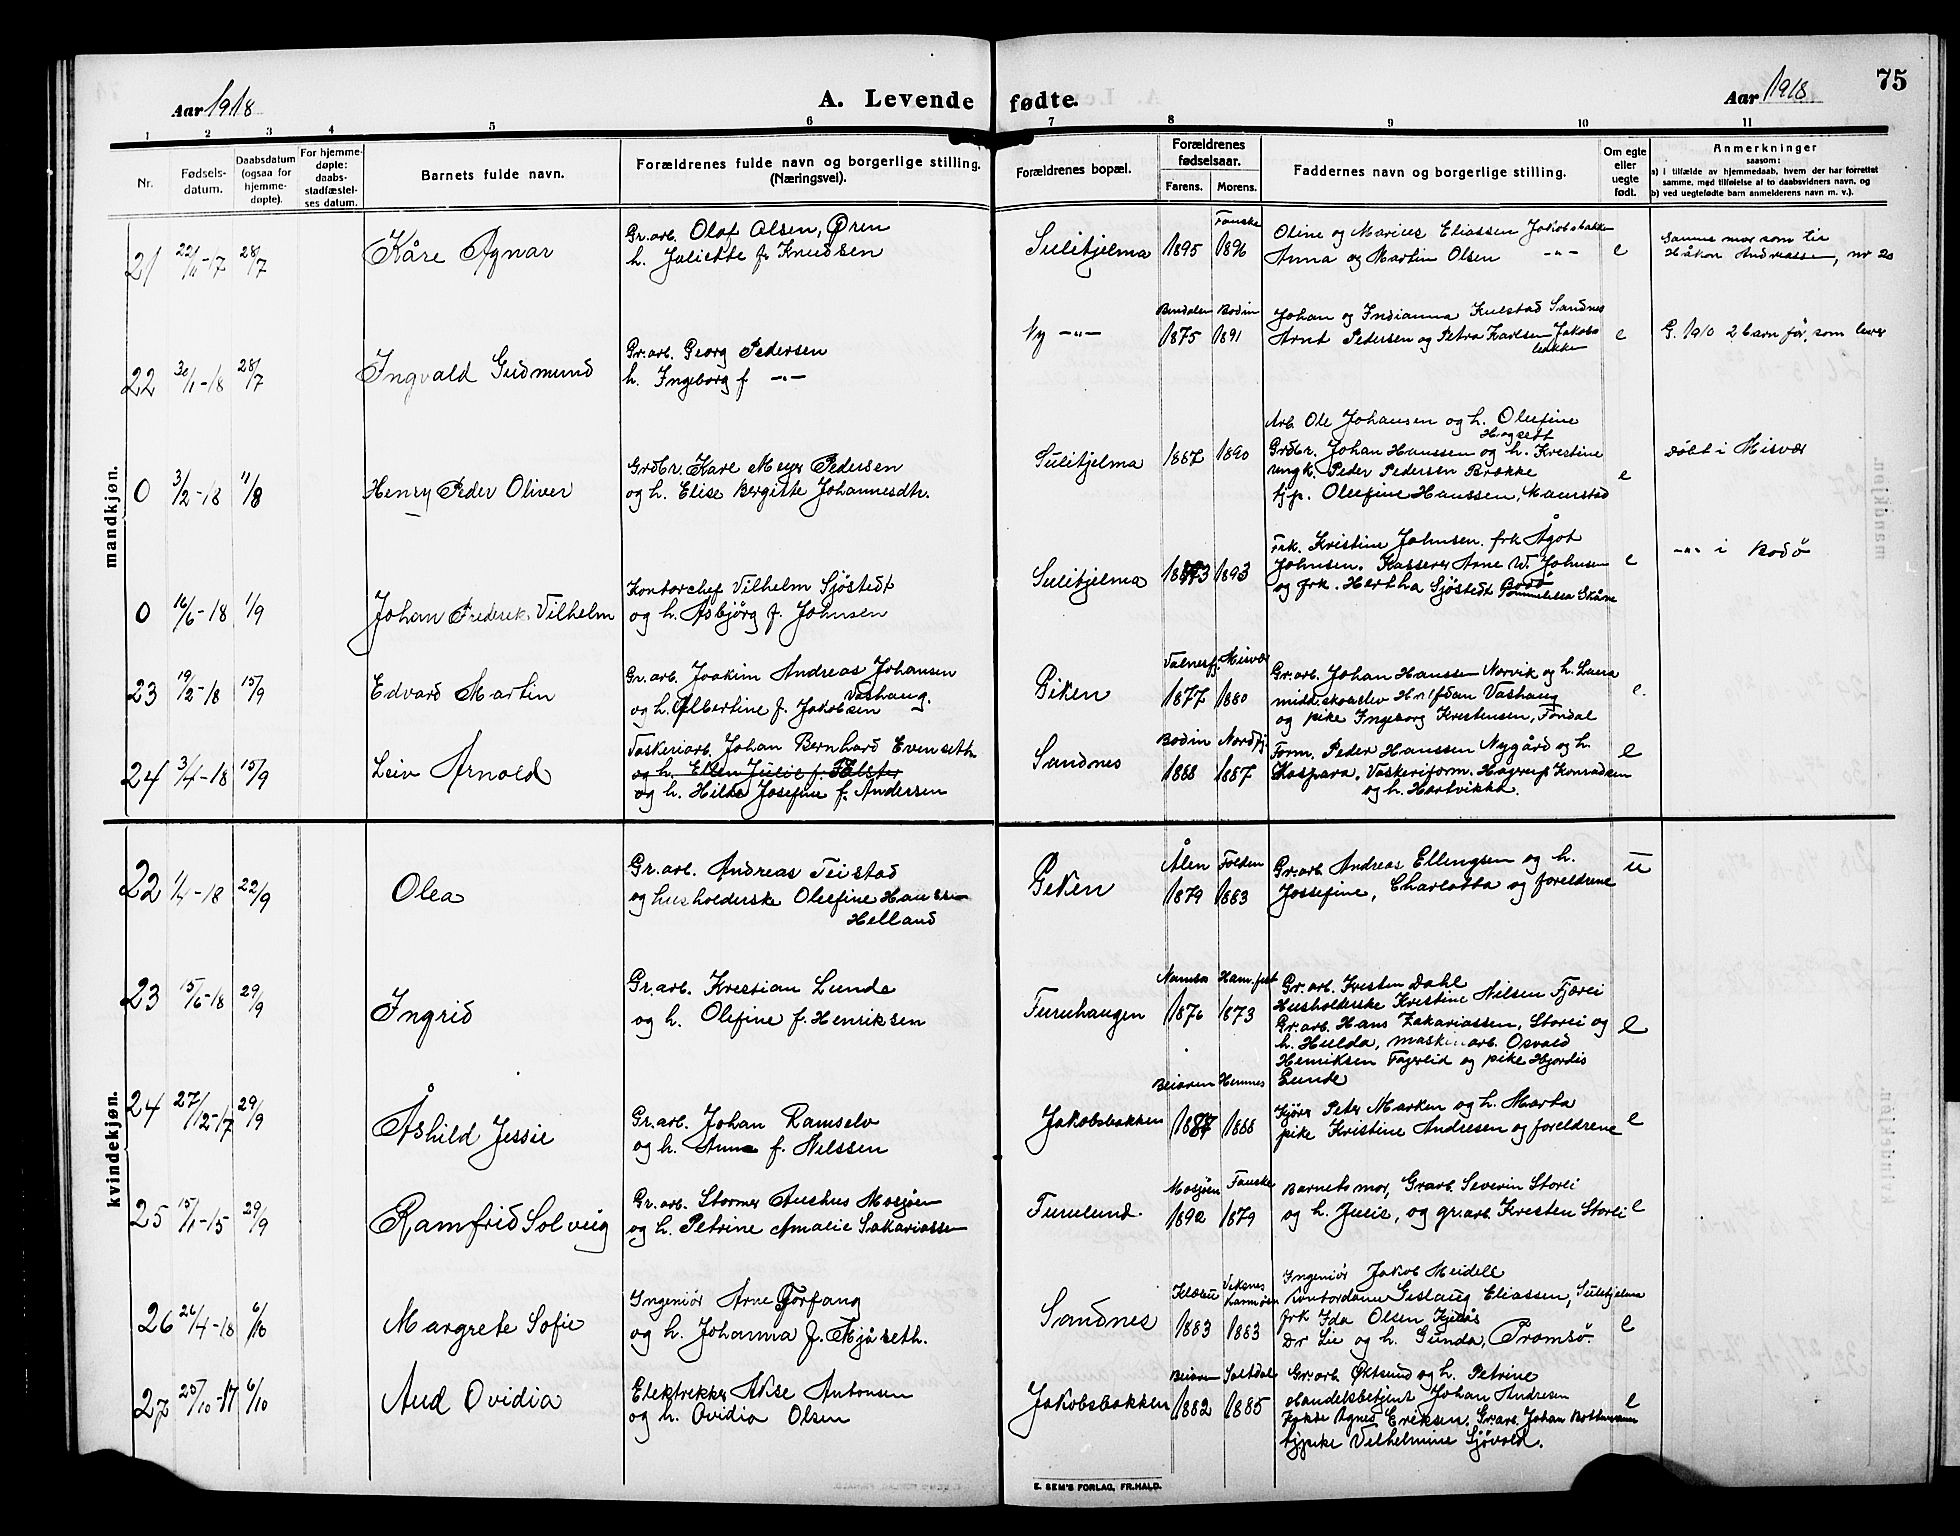 75
Aar 1918
A. Levende fødte.
Aar 1918
1 2 3 4 5 6 7 8 9 10 11
Nr.
Fødsels-
datum.
Daabsdatum
(ogsaa for
hjemme-
døpte).
For hjemme-
døpte:
daabs-
stadfæstel-
ses datum.
Barnets fulde navn.
Forældrenes fulde navn og borgerlige stilling.
(Næringsvei).
Forældrenes bopæl.
Forældrenes
fødselsaar.
Farens. Morens.
Faddernes navn og borgerlige stilling.
Om egte
eller
uegte
født.
Anmerkninger
saasom:
a) i tilfælde av hjemmedaab, hvem der har forrettet
samme, med tilføielse af to daabsvidners navn, og
b) ved uegtefødte barn anmelderens navn m. v.).
mandkjøn.
21 22/11-17 28/7 Kåre Agnar
Gr.arb. Olaf Olsen, Øren
h. Juliette f. Knudsen
Sulitjelma 1895
Fauske
1896
Oline og Marius Eliassen Jakobsbakken
Anna og Martin Olsen -"-
e
Samme mor som til
Håkon Andreassen, nr 20
22 30/1-18 28/7 Ingvald Gudmund
Gr.arb. Georg Pedersen
h. Ingeborg f -"-
Ny -"-
1875
Bodin
1891
Johan og Indianna Kulstad Sandnes
Arnt Pedersen og Petra Karlsen Jakobs
bakken
e
G. 1910 2 barn før, som lever
0 3/2-18 11/8 Henry Peder Oliver
Grdbr. Karl Meyer Pedersen
og h. Elise Bergitte Johannesdtr.
Sulitjelma 1887 1890
Arb. Ole Johansen og h. Oleefine
Hogsett
Grdbr. Johan Hanssen og h. Kristine
ungk. Peder Pedersen Brække
tjp. Oleefine Hanssen,
e
døbt i Misvær
0 16/6-18 1/9 Johan Frederik Vilhelm
Kontorchef Vilhelm Sjöstedt
og h. Asbjørg f. Johnsen
Sulitjelma 1893
Frk. Kristine Johnsen. frk Ågot
Johnsen. Kasserer Arne W. Johnsen
Bodø
og frk. Hertha Sjöstedt Skåne
e
-"- i Bodø
23 19/2-18 15/9 Edvard Martin
Gr.arb. Joakim Andreas Johansen
Vashaug.
og h. Albertine f. Jakobsen
Giken
Valnesfj.
1877
Misvær
1880
Gr.arb. Johan Hanssen Norvik og h. Laura
middskoleelev Halfdan Vashaug
og pike Ingeborg Kristensen, Fondal
e.
24 3/4-18 15/9 Leiv Arnold
Vaskeriarb. Johan Bernhard Evenseth
og h. Ellen Julie f. Falster
og h. Hilda Josefine f. Andersen
Sandnes
Bodin
1888
Nordfj.
1887
Form. Peder Hanssen Nygård og h.
Kaspara. Vaskeriform. Hagerup Konradsen
og h. Hartvikka.
e
kvindekjøn.
22 1/4-18 22/9 Olea
Gr.arb. Andreas Teistad
og husholderske Oleefine Hansen
Helland
Giken
Ålen
1879
Folden
1883
Gr.arb Andreas Ellingsen og h.
Jossefine, Charlotta og foreldrene
u
23 15/6-18 29/9 Ingrid
Gr.arb. Kristian Lunde
og h. Olefine f. Henriksen
Furuhaugen
Namsos
1876
Ham.fest
1873
Gr.arb. Kristen Dahl
Husholderske Kristine Nilsen Fjorei
Gr.arb. Hans Zakariassen, Storei og
h. Hulda, maskinarb. Osvald
Henriksen Fagreid og pike Hjordis
Lunde
e
24 27/12-17 29/9 Åshild Jessie
Gr.arb. Johan Ramselv
og h. Anna f. Nilssen
Jakobsbakken
Beiaren
1887
Hemnes
1888
Kjører Peter Marken og h. Marta
pike Kristine Andresen og foreldrene
e
25 15/1-15 29/9 Ramfrid Solveig
Gr.arb. Stormer Aushus Mosjøen
og h. Petrine Amalie Sakariassen
Furulund.
Mosjøen
1892
Fauske
1879
Barnets mor, Gr.arb. Severin Storei
og h. Julie, og gr.arb. Kristen Storei
e
26 26/4-18 6/10 Margrete Sofie
Ingeniør Arne Forfang
og h. Johanna f. Mjåseth.
Sandnes
1883 1883
Ingeniør Jakob Meidell
Kontordame Gislaug Eliassen, Sulitjelma
frk Ida Olsen Kjelås
Dr Lie og h. Gunda, Tromsø.
e
27 25/10-17 6/10 Aud Ovidia
Elektrikker Aksel Antonsen
og h. Ovidia Olsen
Jakobsbakken
Beiaren
1882
Saltdal
1885
Gr.arb Øksund og h. Petrine
Handelsbetjent Johan Andresen
Agnes Eriksen. Gr.arb. Johan
tjpike Vilhelmine Sjøvold.
e
E. SEM'S FORLAG, FR.HALD.